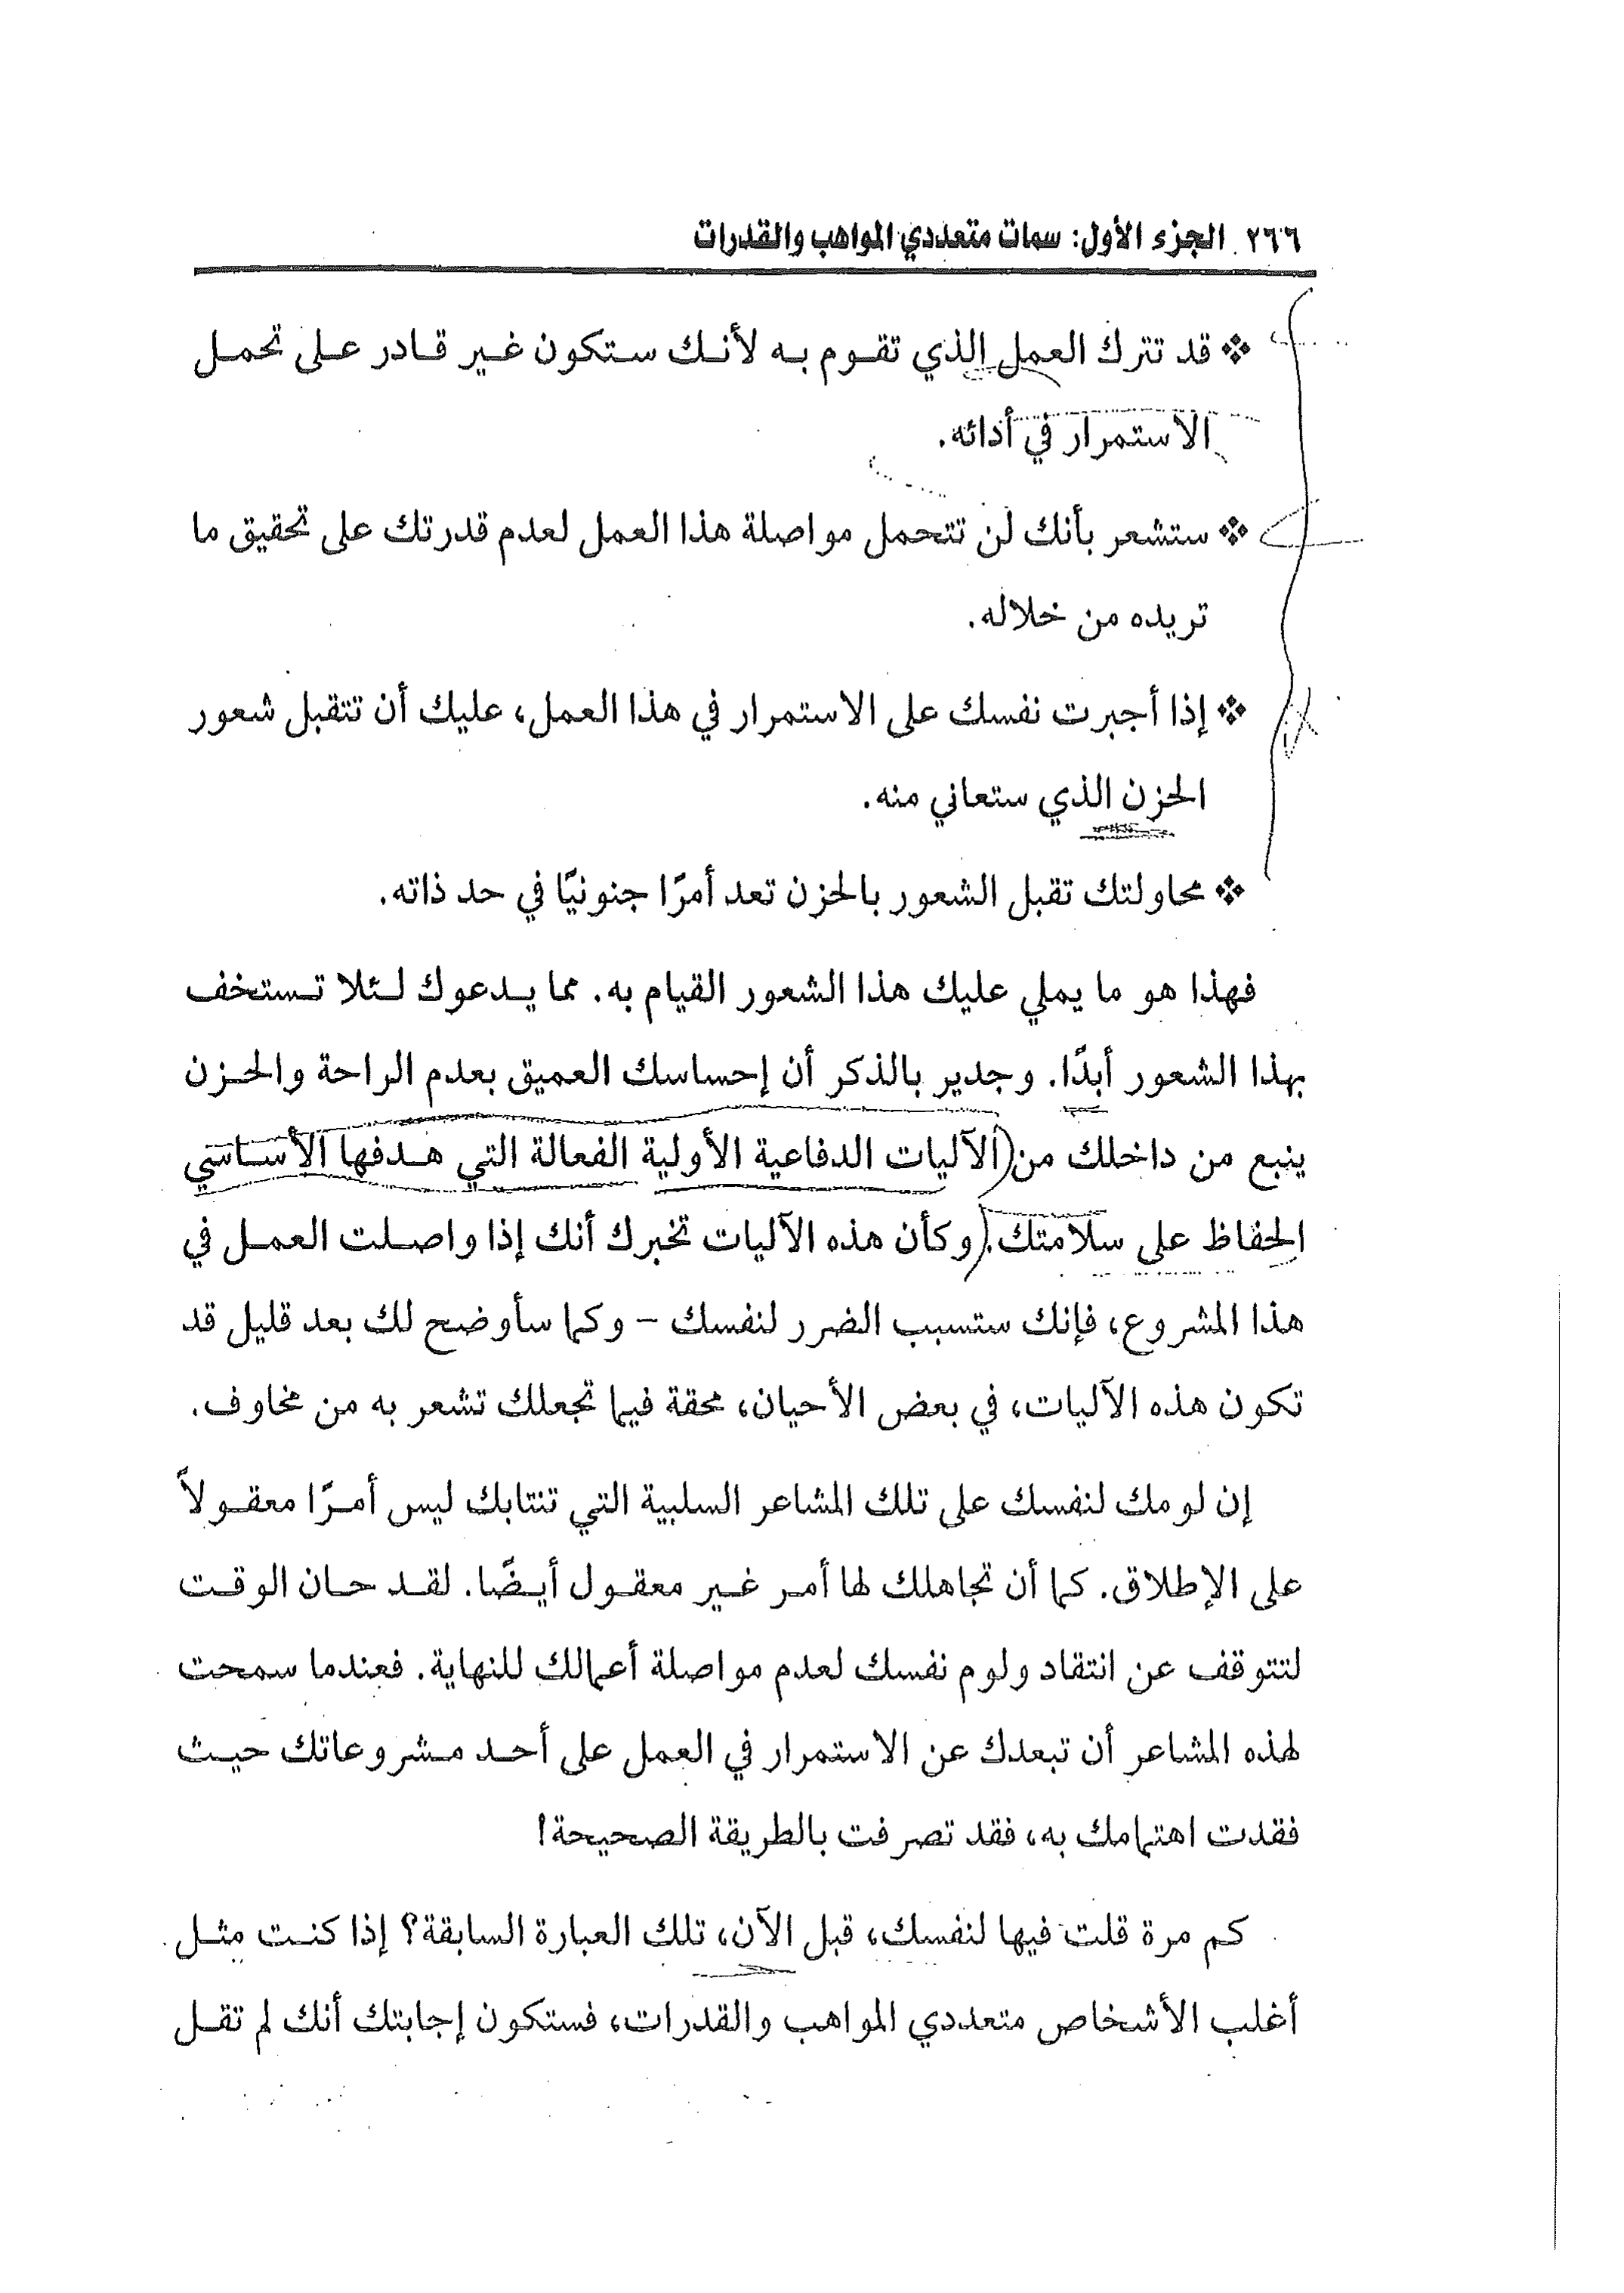 ٢٦٦ الجزء الأول: سمات متعددي المواهب والقدرات
❖ قد تترك العمل الذي تقوم به لأنك ستكون غير قادر على تحمل
الاستمرار في أدائه.
❖ ستشعر بأنك لن تتحمل مواصلة هذا العمل لعدم قدرتك على تحقيق ما
تريده من خلاله.
❖ إذا أجبرت نفسك على الاستمرار في هذا العمل، عليك أن تتقبل شعور
الحزن الذي ستعاني منه.
❖ محاولتك تقبل الشعور بالحزن تعد أمرًا جنونيًا في حد ذاته.
فهذا هو ما يملي عليك هذا الشعور القيام به. مما يدعوك لئلا تستخف
بهذا الشعور أبدًا. وجدير بالذكر أن إحساسك العميق بعدم الراحة والحزن
ينبع من داخلك من الآليات الدفاعية الأولية الفعالة التي هدفها الأساسي
الحفاظ على سلامتك. وكأن هذه الآليات تخبرك أنك إذا واصلت العمل في
هذا المشروع، فإنك ستسبب الضرر لنفسك – وكما سأوضح لك بعد قليل قد
تكون هذه الآليات، في بعض الأحيان، محقة فيما تجعلك تشعر به من مخاوف.
إن لومك لنفسك على تلك المشاعر السلبية التي تنتابك ليس أمرًا معقولاً
على الإطلاق. كما أن تجاهلك لها أمر غير معقول أيضًا. لقد حان الوقت
لتتوقف عن انتقاد ولوم نفسك لعدم مواصلة أعمالك للنهاية. فعندما سمحت
لهذه المشاعر أن تبعدك عن الاستمرار في العمل على أحد مشروعاتك حيث
فقدت اهتمامك به، فقد تصرفت بالطريقة الصحيحة!
كم مرة قلت فيها لنفسك، قبل الآن، تلك العبارة السابقة؟ إذا كنت مثل
أغلب الأشخاص متعددي المواهب والقدرات، فستكون إجابتك أنك لم تقل